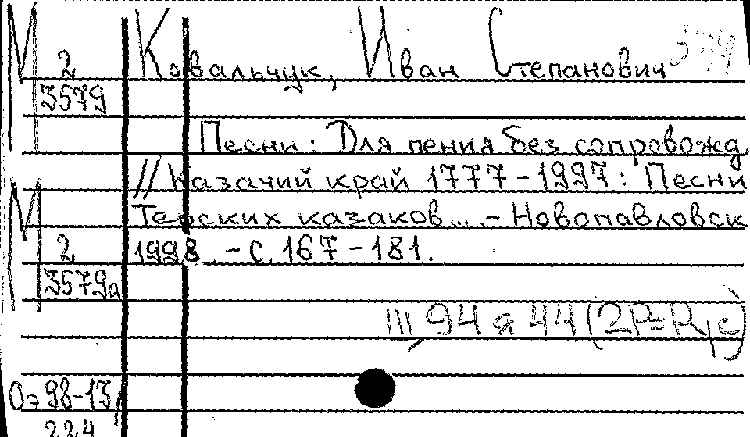 Ковальчук, Иван Степанович
М 2
3579
Песни: Для пения без сопровожд.
// Казачий край 1777-1997: Песни
Терских казаков... - Новопавловск
1998. - С. 167-181.
М 2
3579а
III 94 а 44 (2Р=Рус)
О₂ 98-13/
224